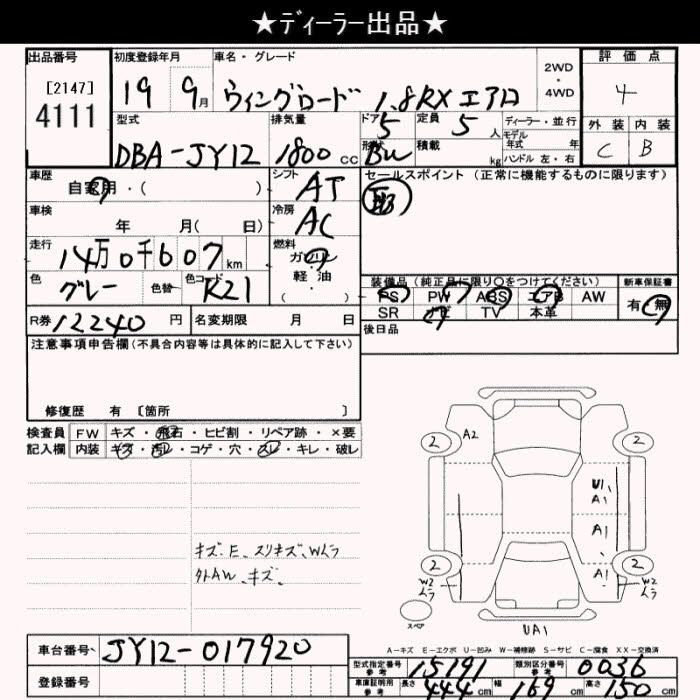 ★ディーラー出品★
出品番号 初度登録年月 車名・グレード 2WD・4WD 評価点
[2147]
4111 19 9月 ウィングロード 1.8RX エアロ 4
型式 排気量 ドア 5 定員 5人 ディーラー・並行 外装 内装
モデル年式 年
DBA-JY12 1800cc 形状 BW 積載 kg ハンドル 左・右 C B
車歴 シフト セールスポイント(正常に機能するものに限ります)
自家用・( ) AT
車検 冷房
年 月( 日) AC
走行 燃料
14万0千607km ガソリン
色 色替 色コード 軽油
グレー K21 ( )
装備品(純正品に限り○をつけてください) 新車保証書
PS PW ABS エアB AW 有・無
SR ナビ TV 本革
R券 12240円 名変期限 月 日 後日品
注意事項申告欄(不具合内容等は具体的に記入して下さい)
修復歴 有 〔箇所 〕
検査員 FW キズ・飛石・ヒビ割・リペア跡・×要
記入欄 内装 キズ・汚レ・コゲ・穴・スレ・キレ・破レ
キズ、E、スリキズ、Wムラ
外AW、キズ、
2 A2 2
U1、
A1
A1
、
A1
2 2
W2 ムラ W2 ムラ
スペア
UA1
A-キズ E-エクボ U-凹み W-補修跡 S-サビ C-腐食 XX-交換済
車台番号 JY12-017920
登録番号
型式指定番号参考 15191 類別区分番号参考 0036
車庫証明用参考 長さ 444cm 幅 169cm 高さ 150cm